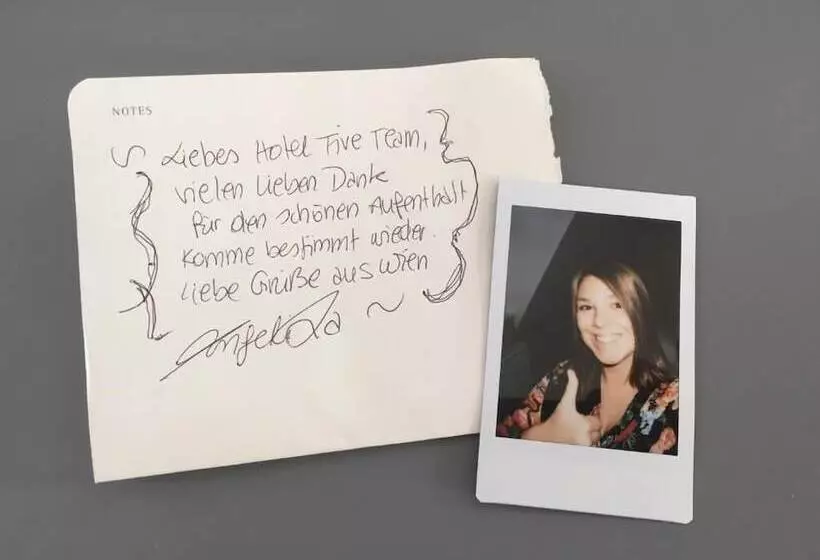 NOTES
Liebes Hotel Five Team,
vielen lieben Dank
für den schönen Aufenthalt
Komme bestimmt wieder.
Liebe Grüße aus Wien
Angelika